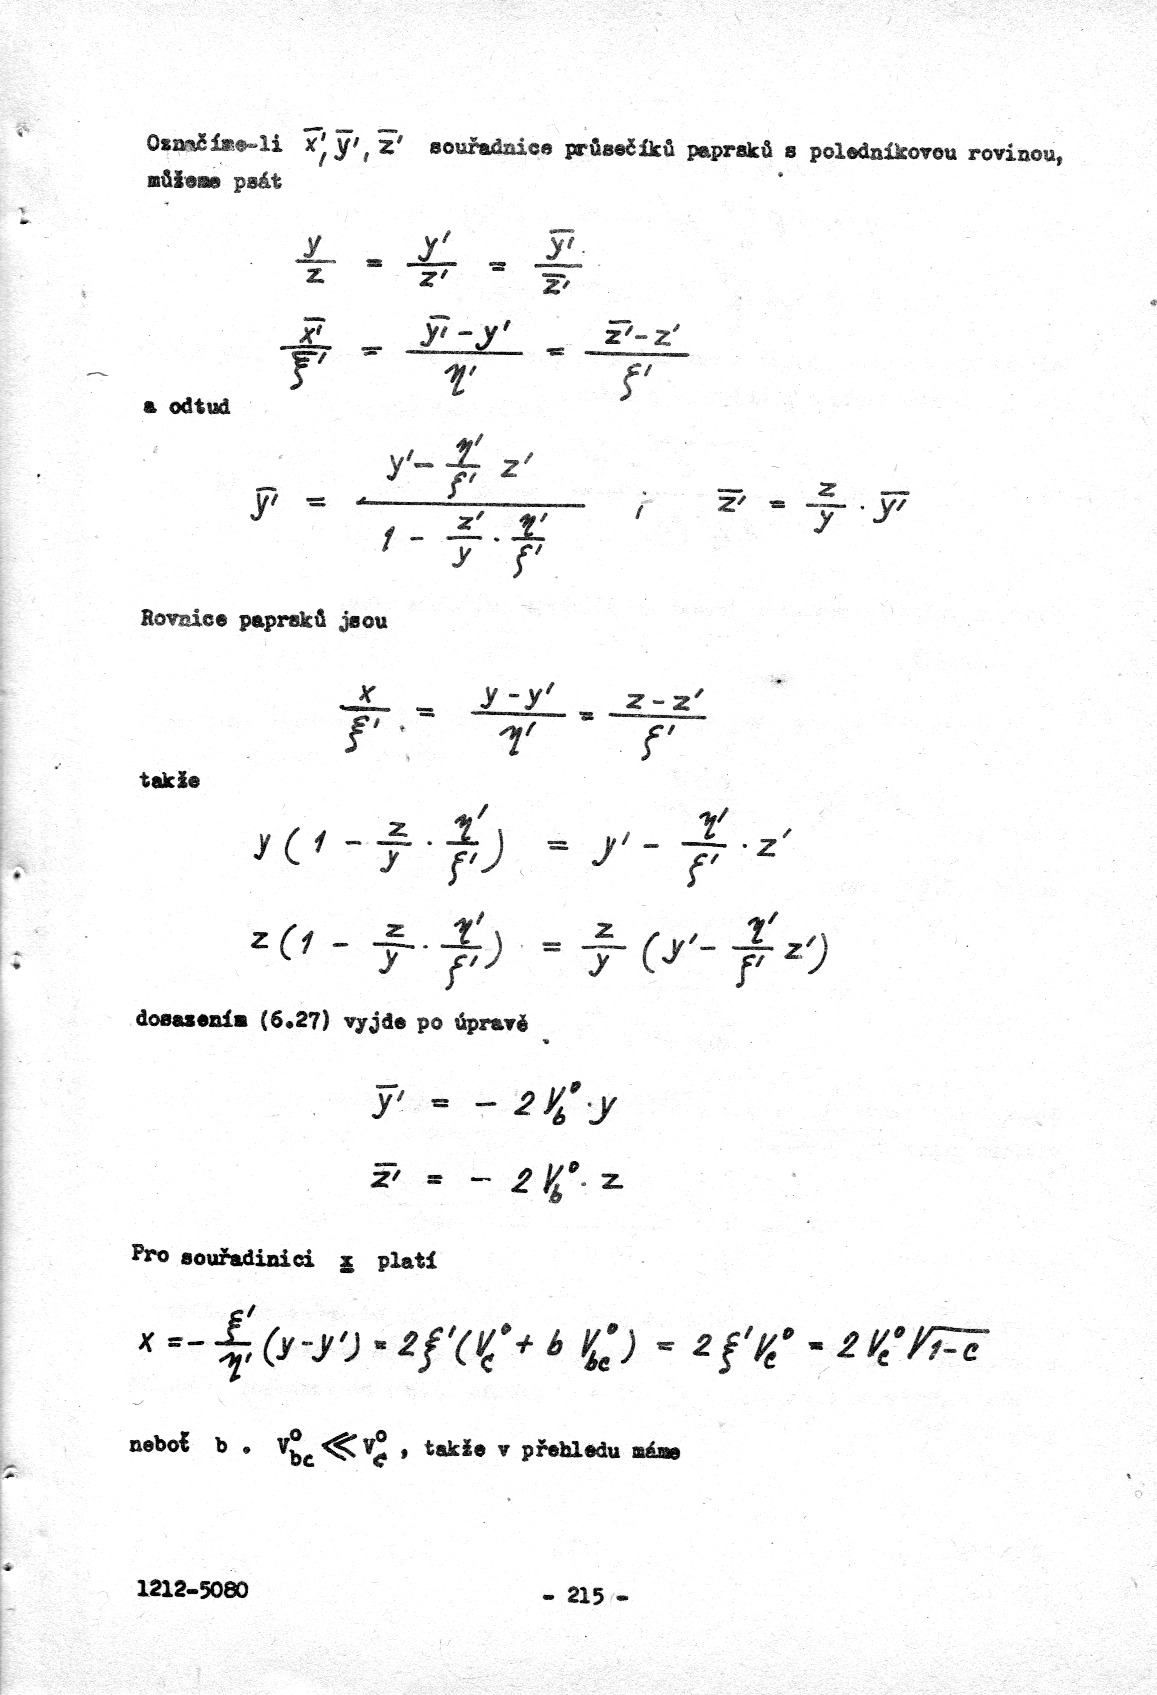 Označíme-li x̅', y̅', z̅' souřadnice průsečíků paprsků s poledníkovou rovinou,
můžeme psát
y/z = y'/z' = y̅'/z̅'
x̅'/ξ' = (y̅' - y')/η' = (z̅' - z')/ζ'
a odtud
y̅' = (y' - η'/ζ' z') / (1 - z'/y · η'/ζ') ; z̅' = z/y · y̅'
Rovnice paprsků jsou
x/ξ' = (y - y')/η' = (z - z')/ζ'
takže
y (1 - z/y · η'/ζ') = y' - η'/ζ' · z'
z (1 - z/y · η'/ζ') = z/y (y' - η'/ζ' z')
dosazením (6.27) vyjde po úpravě
y̅' = - 2 V_b^o · y
z̅' = - 2 V_b^o · z
Pro souřadinici x platí
x = - ξ'/η' (y - y') = 2 ξ' (V_c^o + b V_bc^o) = 2 ξ' V_c^o = 2 V_c^o √1-c
neboť b . V_bc^o ≪ V_c^o , takže v přehledu máme
1212-5080 - 215 -